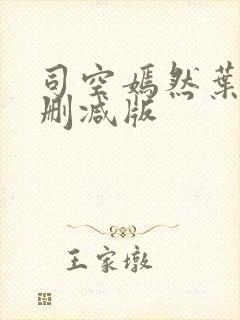 司空嫣然葉
删减版
王家墩